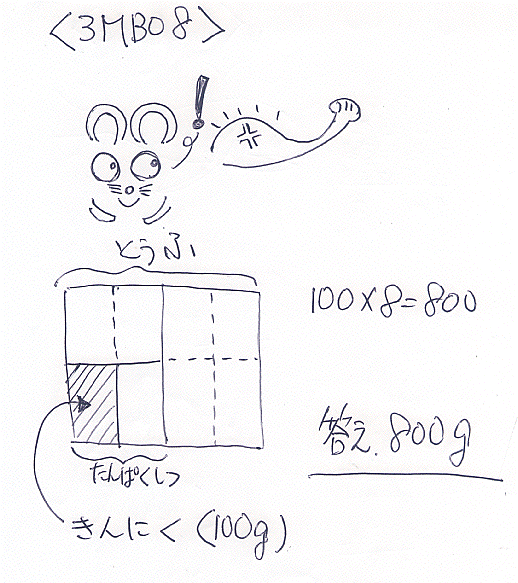 <3MB08>
!
とうふ
100×8=800
答え.800g
たんぱくしつ
きんにく(100g)